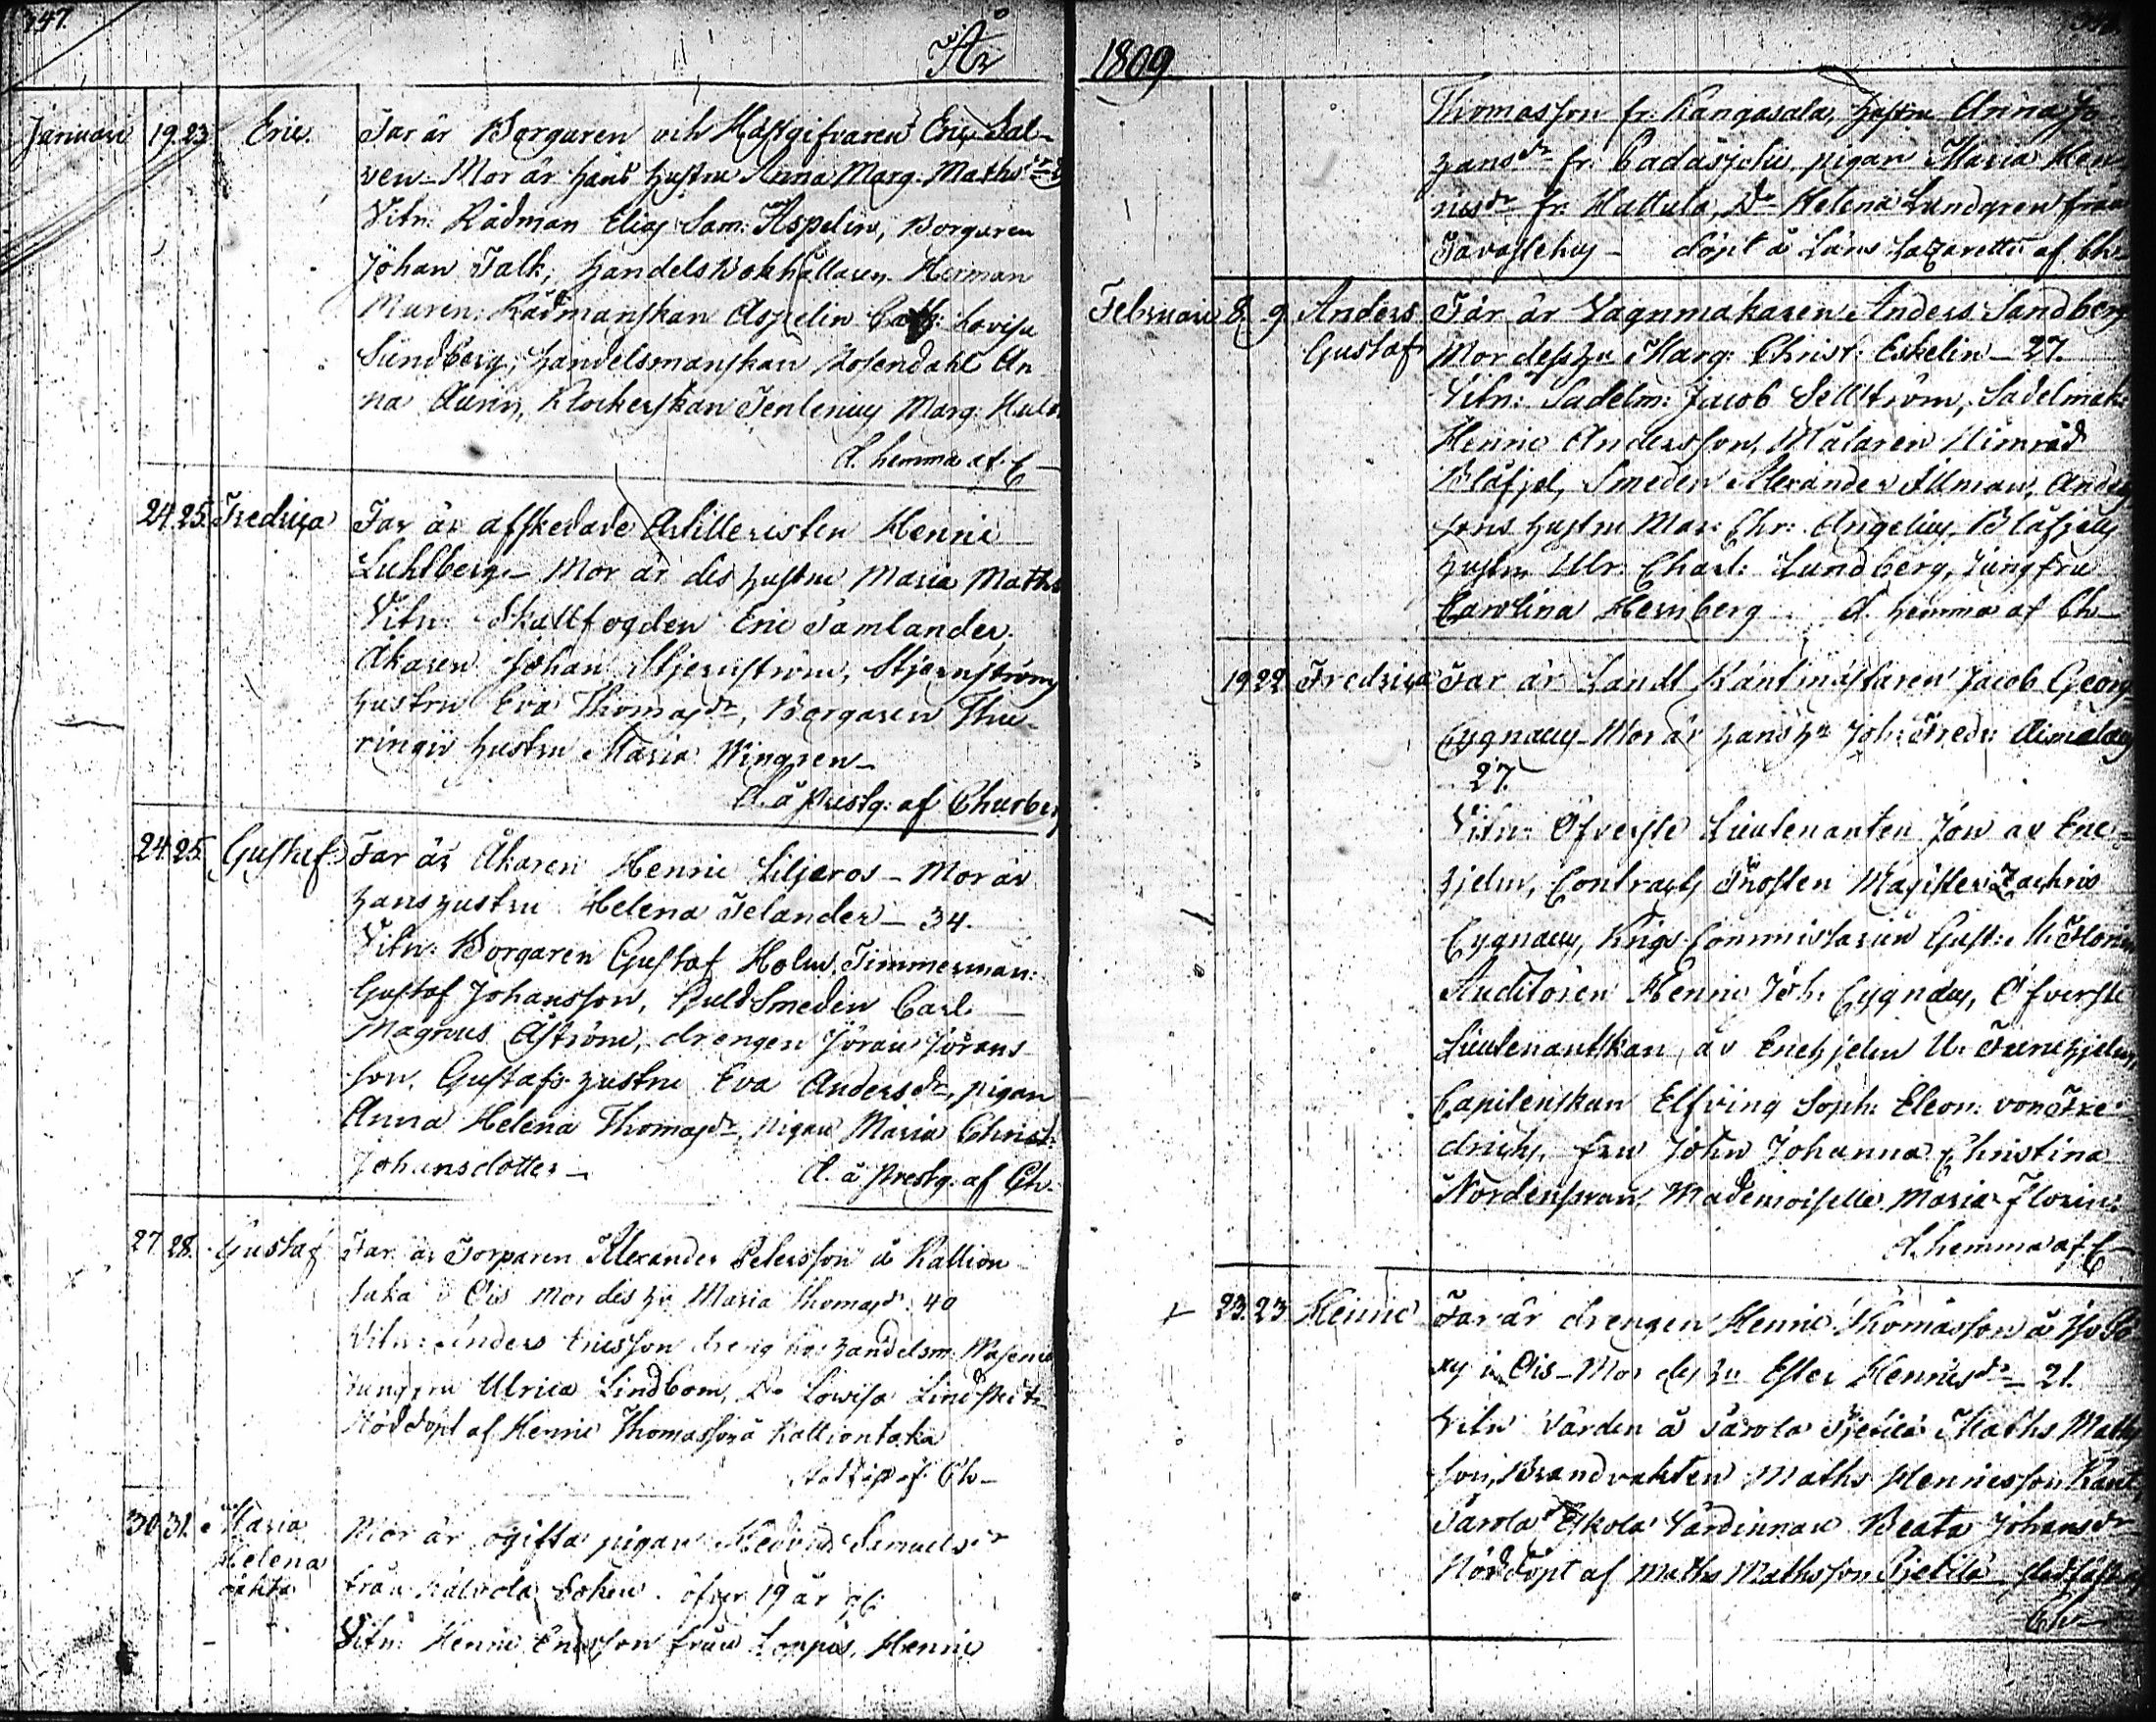 347.
År
Januari 19. 23. Eric. Far är Borgaren och Hästgifvaren Eric Sal-
ven - Mor är hans hustru Anna Marg. Mathsdr
Vitn: Rådman Elias Sam: Aspelin, Borgaren
Johan Falk, Handels Bokhållaren Herman
Muren, Rådmanskan Aspelin Cath: Lovisa
Sundberg, handelsmanskan Rosendahl An
na, Klockerskan Tenlenius Marg.
d. hemma af C
24. 25. Fredrica Far är afskedade Artilleristen Henric
Luhlberg - Mor är des hustru Maria Maths
Vitn: Skallfogden Eric Tamlander,
Åkaren Johan Stjernström, Stjernströms
hustru Eva Thomasdr, Borgaren Thu-
rings hustru Maria Wingren -
d. å Prestg: af Churberg
24. 25. Gustaf. Far är Åkaren Henric Liljeros - Mor är
hans hustru Helena Telander - 34.
Vitn: Borgaren Gustaf Holm, Timmerman:
Gustaf Johansson, GuldSmeden Carl
Magnus Åström, drengen Jöran Jörans
son, Gustafs hustru Eva Andersdr, pigan
Anna Helena Thomasdr, pigan Maria Christ:
Johansdotter - d. å Prestg. af Ch.
27. 28. Gustaf Far är Torparen Alexander Petersson å Kallion
taka i Ois Mor des hu Maria Thomasdr. 40
Vitn: Anders Ericsson dreng hos handelsm:
Jungfru Ulrica Lindbom, Do Lowisa
Nöddöpt af Henric Thomasson å Kalliontaka
af Ch -
30. 31. Maria Mor är ogifta pigan Hedvig Samuelsdr
Helena från Kalvola Sokn. öfver 19 år gl:
oäkta Vitn: Henric Ericsson från Loppis, Henric
1809
Thomasson fr. Kangasala, hustru Anna Jo
hansdr fr. Padasjoki, pigan Maria Hen
ricsdr fr. Hattula, Do Helena Lundgren från
Tavastehus - döpt å Läns Lazarettet af Ch -
Februari 8. 9. Anders Far är Vagnmakaren Anders Sandberg
Gustaf Mor dess hu Marg: Christ: Eskelin - 27.
Vitn: Sadelm: Jacob Sellström, Sadelmak:
Henric Andersson, Målaren Nimrod
Blåfjel, Smeden Alexander Allman, Anders
sons hustru Mar: Chr: Angelius, Blåfjels
hustru Ulr. Charl: Lundberg, Jungfru
Carolina Hernberg d. hemma af Ch -
19 22. Fredrica Far är Landt Räntmästaren Jacob Georg
Cygnæus - Mor är hans hu Joh: Fredr:
27.
Vitn: Öfverste Lieutenanten Jon av Ene-
hjelm, Contracts Prosten Magister Zachris
Cygnæus, Krigs Commissarien Gust:
Auditören Henric Joh: Cygnæus, Öfverste
Lieutenantskan av Enehjelm U:
Capitenskan Elfving Soph: Eleon: von Fre
drichs, fru John Johanna Christina
Nordenswan, Mademoiselle Maria Florin
d. hemma af C
23. 23 Henric Far är drengen Henric Thomasson å
i Ois - Mor des hu Ester Henricsdr - 21.
Vitn Värden å Parola Pjetilä Maths Maths
son, Brandvakten Maths Henricsson
Parola Eskola Värdinnan Beata Johansdr
Nöddöpt af Maths Mathsson Pjetilä stadfäst
Ch -